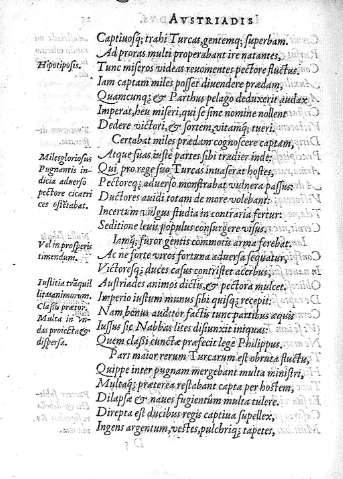 AVSTRIADIS
Captiuosq; trahi Turcas, gentemq; superbam.
Ad proras multi properabant ire natantes,
Hipotiposis.
Tunc miseros videas reuomentes pectore fluctus.
Iam captam miles posset diuendere prædam,
Quamcunq; & Parthus pelago deduxerit audax
Imperat, heu miseri, qui se sine nomine nollent
Dedere victori, & sortem, vitamq; tueri.
Certabat miles prædam cognoscere captam,
Milesgloriosus
Pugnantis in
dicia aduerso
pectore cicatri
ces ostitabat.
Atque suas iustè partes sibi tradier inde:
Qui pro rege suo Turcas inuaserat hostes,
Pectoreq; aduerso monstrabat vulnera passus.
Ductores auidi totam de more volebant:
Incertum vulgus studia in contraria fertur:
Seditione leui populus consurgere visus.
Iamq; furor gentis commotis arma ferebat.
Vel in prosperis
timendum.
Ac ne forte viros fortuna aduersa sequatur,
Victoresq; duces casus contristet acerbus,
Iustitia trãquil
litas animorum.
Classis præter.
Multa in vn-
das proiecta, &
dispersa.
Austriades animos dictis, & pectora mulcet.
Imperio iustum munus sibi quisq; recepit:
Nam benius auditor factis tunc partibus æquis
Iussus sic Nabbas lites disiunxit iniquas:
Quem classi cunctæ præfecit lege Philippus.
Pars maior rerum Turcarum est obruta fluctu,
Quippe inter pugnam mergebant multa ministri,
Multaq; præterea restabant capta per hostem,
Dilapsæ & naues fugientùm multa tulere.
Direpta est ducibus regis captiua supellex,
Ingens argentum, vestes, pulchriq; tapetes,